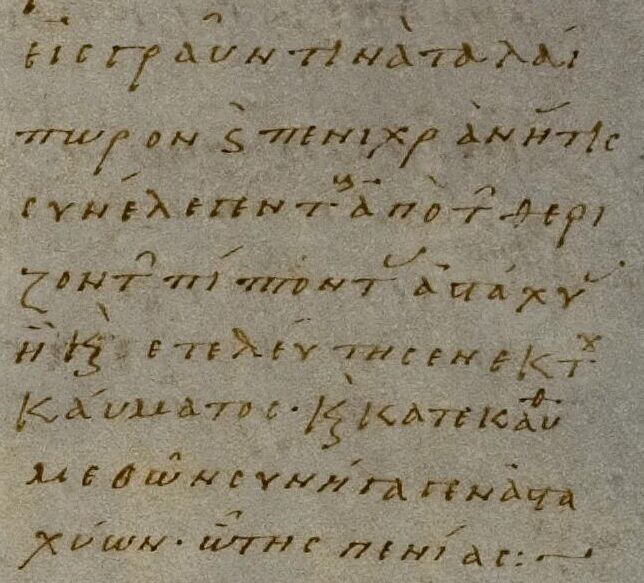 εἰς γραῦν τινὰ ταλαί
πωρον ϗ πενιχρὰν ἥτις
συνέλεγεν τ̈ ἀπὸ τ̑ θερι
ζοντ̑ πίπτοντ ἀστάχυ
ἣ κϗ̀ ἐτελεύτησεν ἐκ τȣ
καύματος· κϗ̀ κατεκαύθ
μεθ ὧν συνήγαγεν ἀστα
χύων· ὢ τῆς πενίας:~